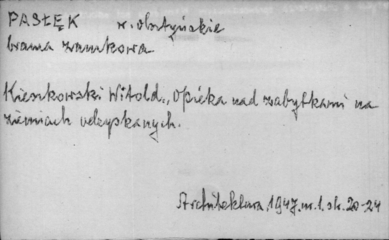 PASŁĘK w. olsztyńskie
brama zamkowa
Kieszkowski Witold., Opieka nad zabytkami na
ziemiach odzyskanych.
Architektura, 1947, nr. 1. str. 20-24